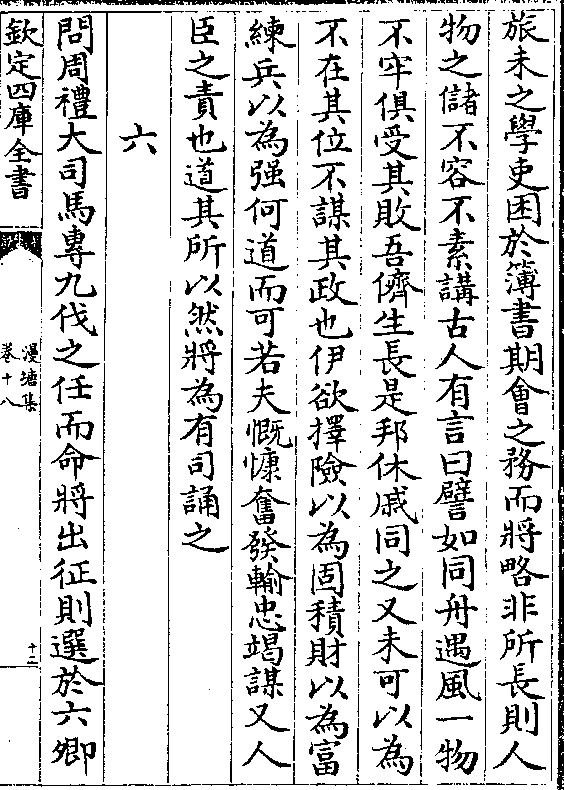 旅未之學吏困於簿書期會之務而將略非所長則人
物之儲不容不素講古人有言曰譬如同舟遇風一物
不牢俱受其敗吾儕生長是邦休戚同之又未可以為
不在其位不謀其政也伊欲擇險以為固積財以為富
練兵以為强何道而可若夫慨慷奮發輸忠竭謀又人
臣之責也道其所以然將為有司誦之
六
問周禮大司馬專九伐之任而命將出征則選於六卿
欽定四庫全書
漫塘集
卷十八
十二